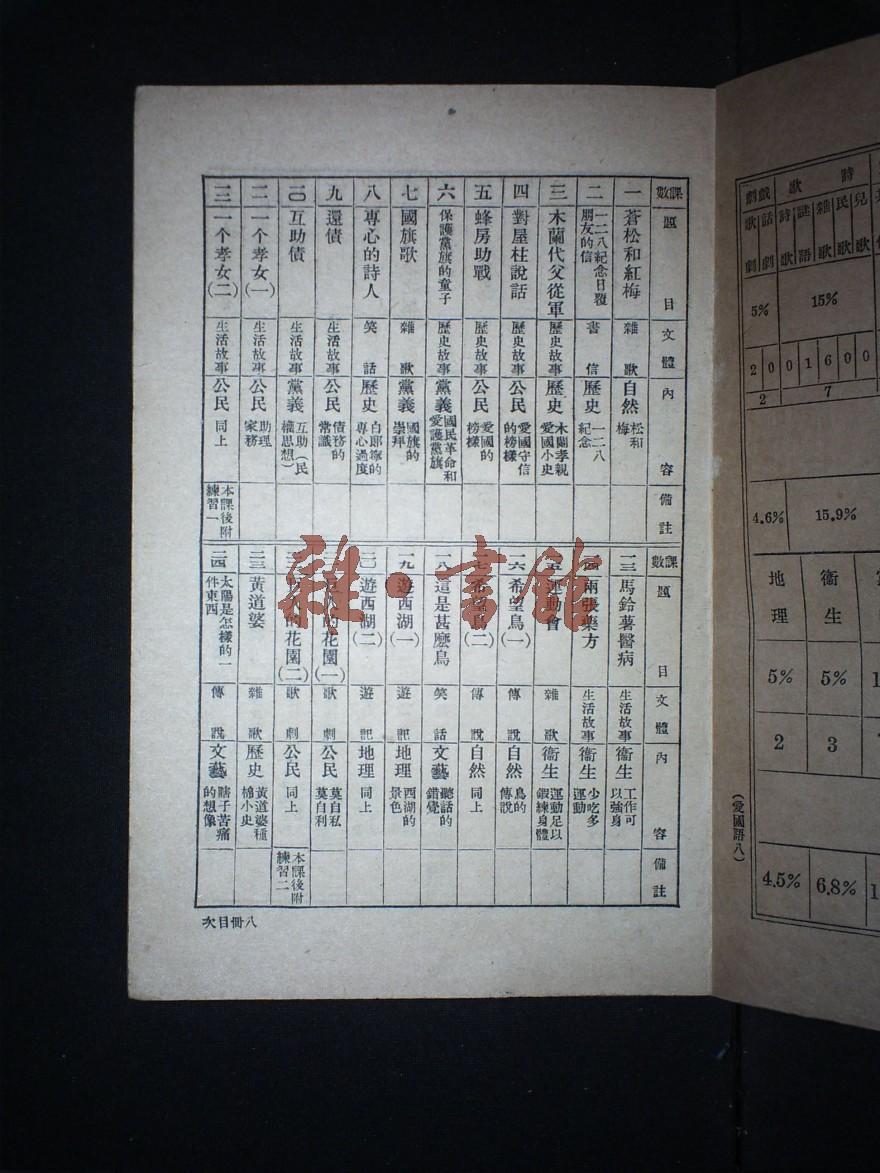 課數 題目 文體 內容 備註
一 蒼松和紅梅 雜歌 自然 松和梅
二 一二八紀念日覆朋友的信 書信 歷史 一二八紀念
三 木蘭代父從軍 歷史故事 歷史 木蘭孝親愛國小史
四 對屋柱說話 歷史故事 公民 愛國守信的榜樣
五 蜂房助戰 歷史故事 公民 愛國的榜樣
六 保護黨旗的童子 歷史故事 黨義 國民革命和愛護黨旗
七 國旗歌 雜歌 黨義 國旗的崇拜
八 專心的詩人 笑話 歷史 白郎寧的專心過度
九 還債 生活故事 公民 債務的常識
一〇 互助債 生活故事 黨義 互助(民權思想)
一一 一个孝女(一) 生活故事 公民 助理家務
一二 一个孝女(二) 生活故事 公民 同上 本課後附練習一
課數 題目 文體 內容 備註
一三 馬鈴薯醫病 生活故事 衞生 工作可以強身
一四 兩張藥方 生活故事 衞生 少吃多運動
一五 運動會 雜歌 衞生 運動足以鍛練身體
一六 希望鳥(一) 傳說 自然 鳥的傳說
一七 希望鳥(二) 傳說 自然 同上
一八 這是甚麼鳥 笑話 文藝 聽話的錯覺
一九 遊西湖(一) 遊記 地理 西湖的景色
二〇 遊西湖(二) 遊記 地理 同上
二一 巨人的花園(一) 歌劇 公民 莫自私莫自利
二二 巨人的花園(二) 歌劇 公民 同上 本課後附練習二
二三 黃道婆 雜歌 歷史 黃道婆種棉小史
二四 太陽是怎樣的一件東西 傳說 文藝 瞎子苦痛的想像
八冊目次
雜·書館
詩歌 戲劇
兒歌 民歌 雜歌 謎語 詩歌 話劇 歌劇
15% 5%
0 0 6 1 0 0 2
7 2
15.9% 4.6%
衞生 地理
5% 5%
3 2
6.8% 4.5%
(愛國語八)